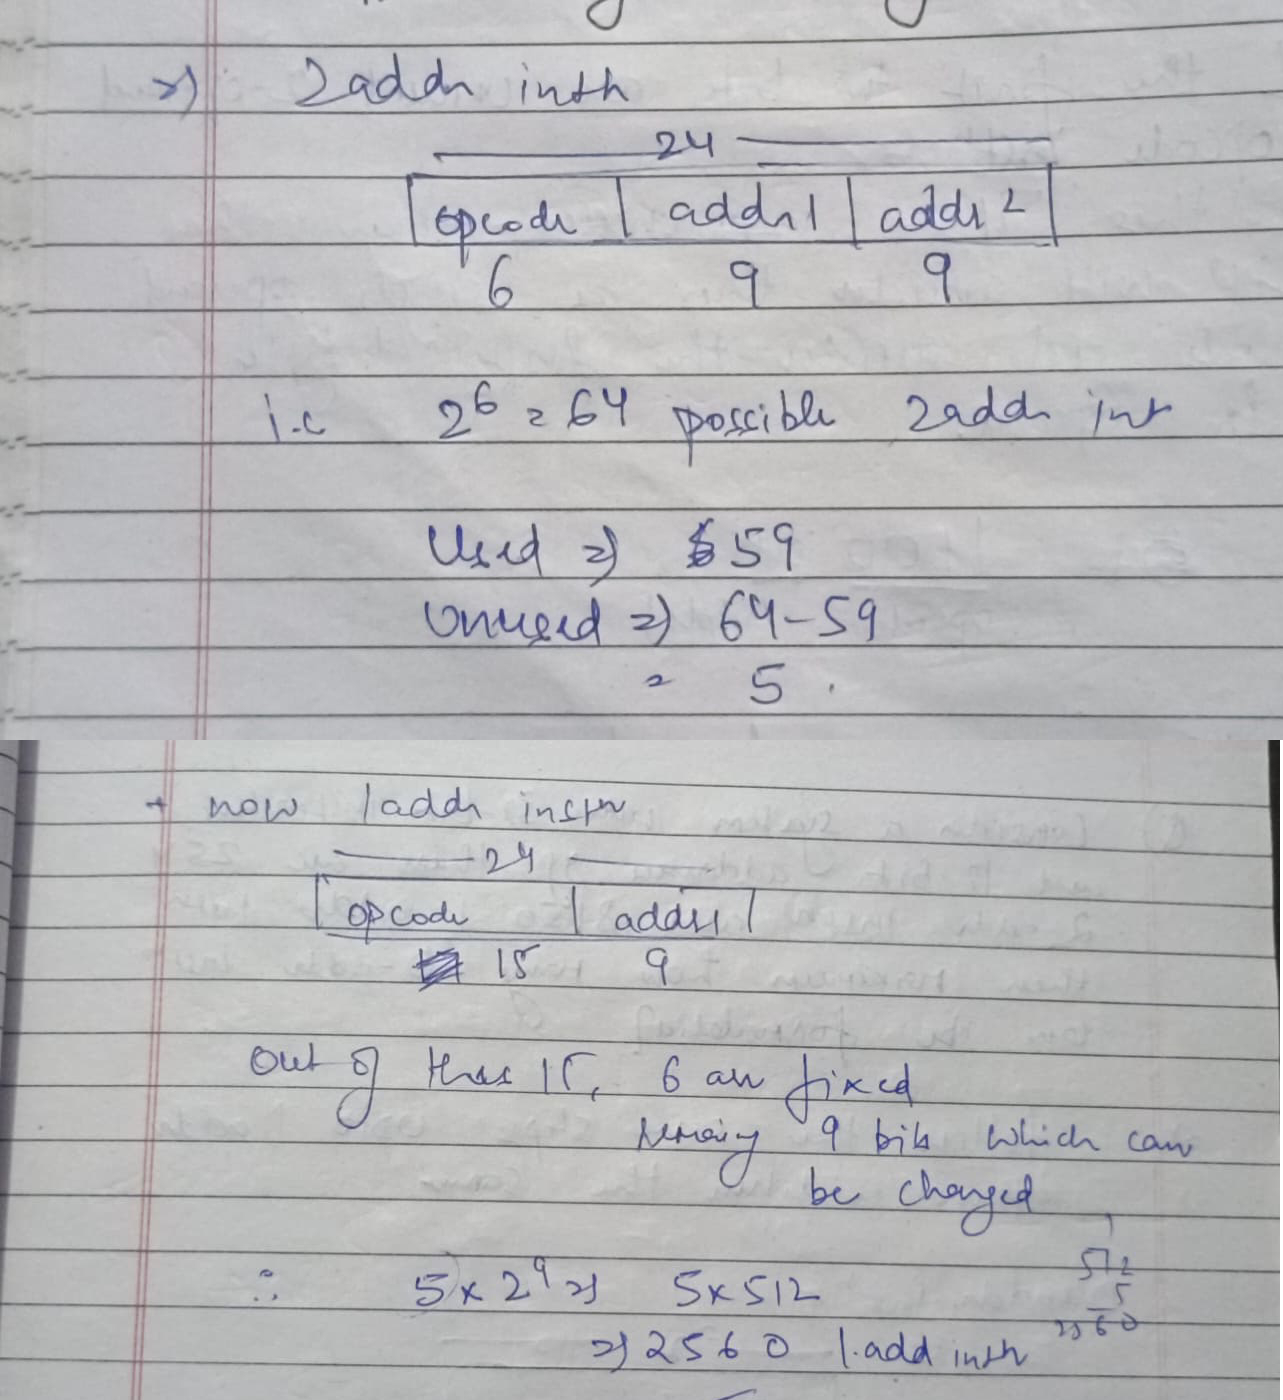 2addr instr
24
opcode addr1 addr2
6 9 9
i.e 2^6 = 64 possible 2addr ins
Used => 59
Unused => 64-59
= 5.
+ now 1addr instr
24
opcode addr1
15 9
Out of these 15, 6 are fixed
9 bits which can
be changed
512
∴ 5x2^9 => 5x512
5
=> 2560 1.add instr
2560